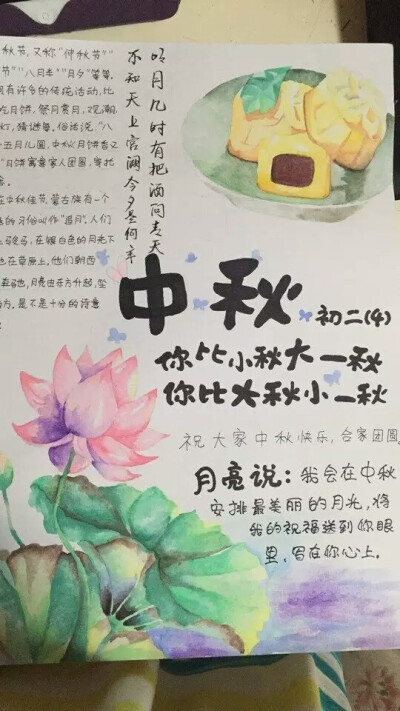 秋节,又称“仲秋节”“
节”“八月半”“月夕”等等.
有许多的传统活动,比
吃月饼,祭月赏月,观潮
灯,猜谜等。俗话说,“八
十五月儿圆,中秋月饼香又
“月饼寓意家人团圆,寄托
念。
在中秋佳节,蒙古族有一个
的习俗叫作“追月”.人们
上骏马,在银白色的月光下
在草原上。他们朝西
奔驰,月亮由东方升起,坠
方,是不是十分的诗意
明月几时有把酒问青天
不知天上宫阙今夕是何年
中秋
初二(4)
你比小秋大一秋
你比大秋小一秋
祝大家中秋快乐,合家团圆
月亮说:我会在中秋
安排最美丽的月光,将
我的祝福送到你眼
里,写在你心上。